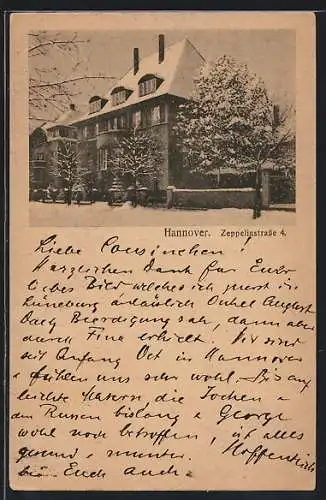 Hannover. Zeppelinstraße 4.
Liebe Cousinchen!
Herzlichen Dank für Euer
liebes Bild welches ich zuerst in
Lüneburg anlässlich Onkel August
Beerdigung sah, dann aber
durch Fine erhielt. Wir sind
seit Anfang Okt in Hannover
& fühlen uns sehr wohl. Bis auf
leichte Masern, die Jochen &
den Kurzen bislang & George
wohl noch betreffen, ist alles
gesund & munter. Hoffentlich
bei Euch auch.